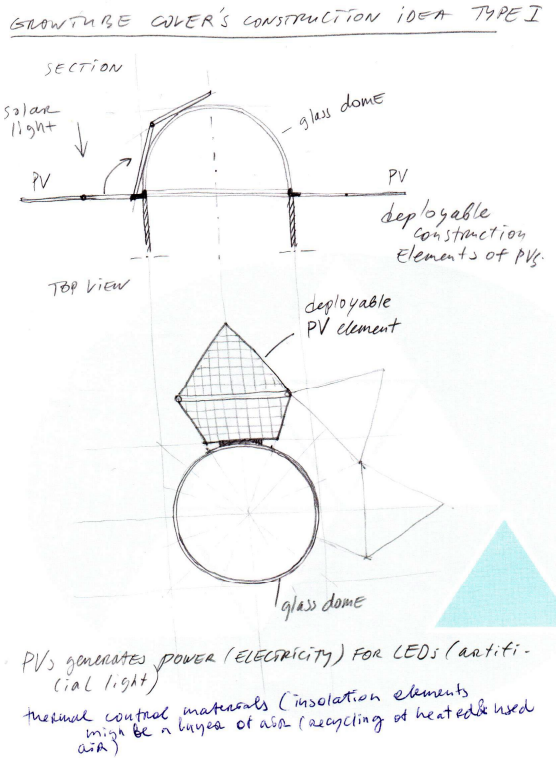 GROWTUBE COVER'S CONSTRUCTION IDEA TYPE I
SECTION
solar
light
glass dome
PV
PV
deployable
construction
Elements of PVs.
TOP VIEW
deployable
PV element
glass dome
PVs generates power (ELECTRICITY) FOR LEDs (artifi-
cial light)
thermal control materials (insolation elements
might be a layer of air (recycling of heated & used
air)